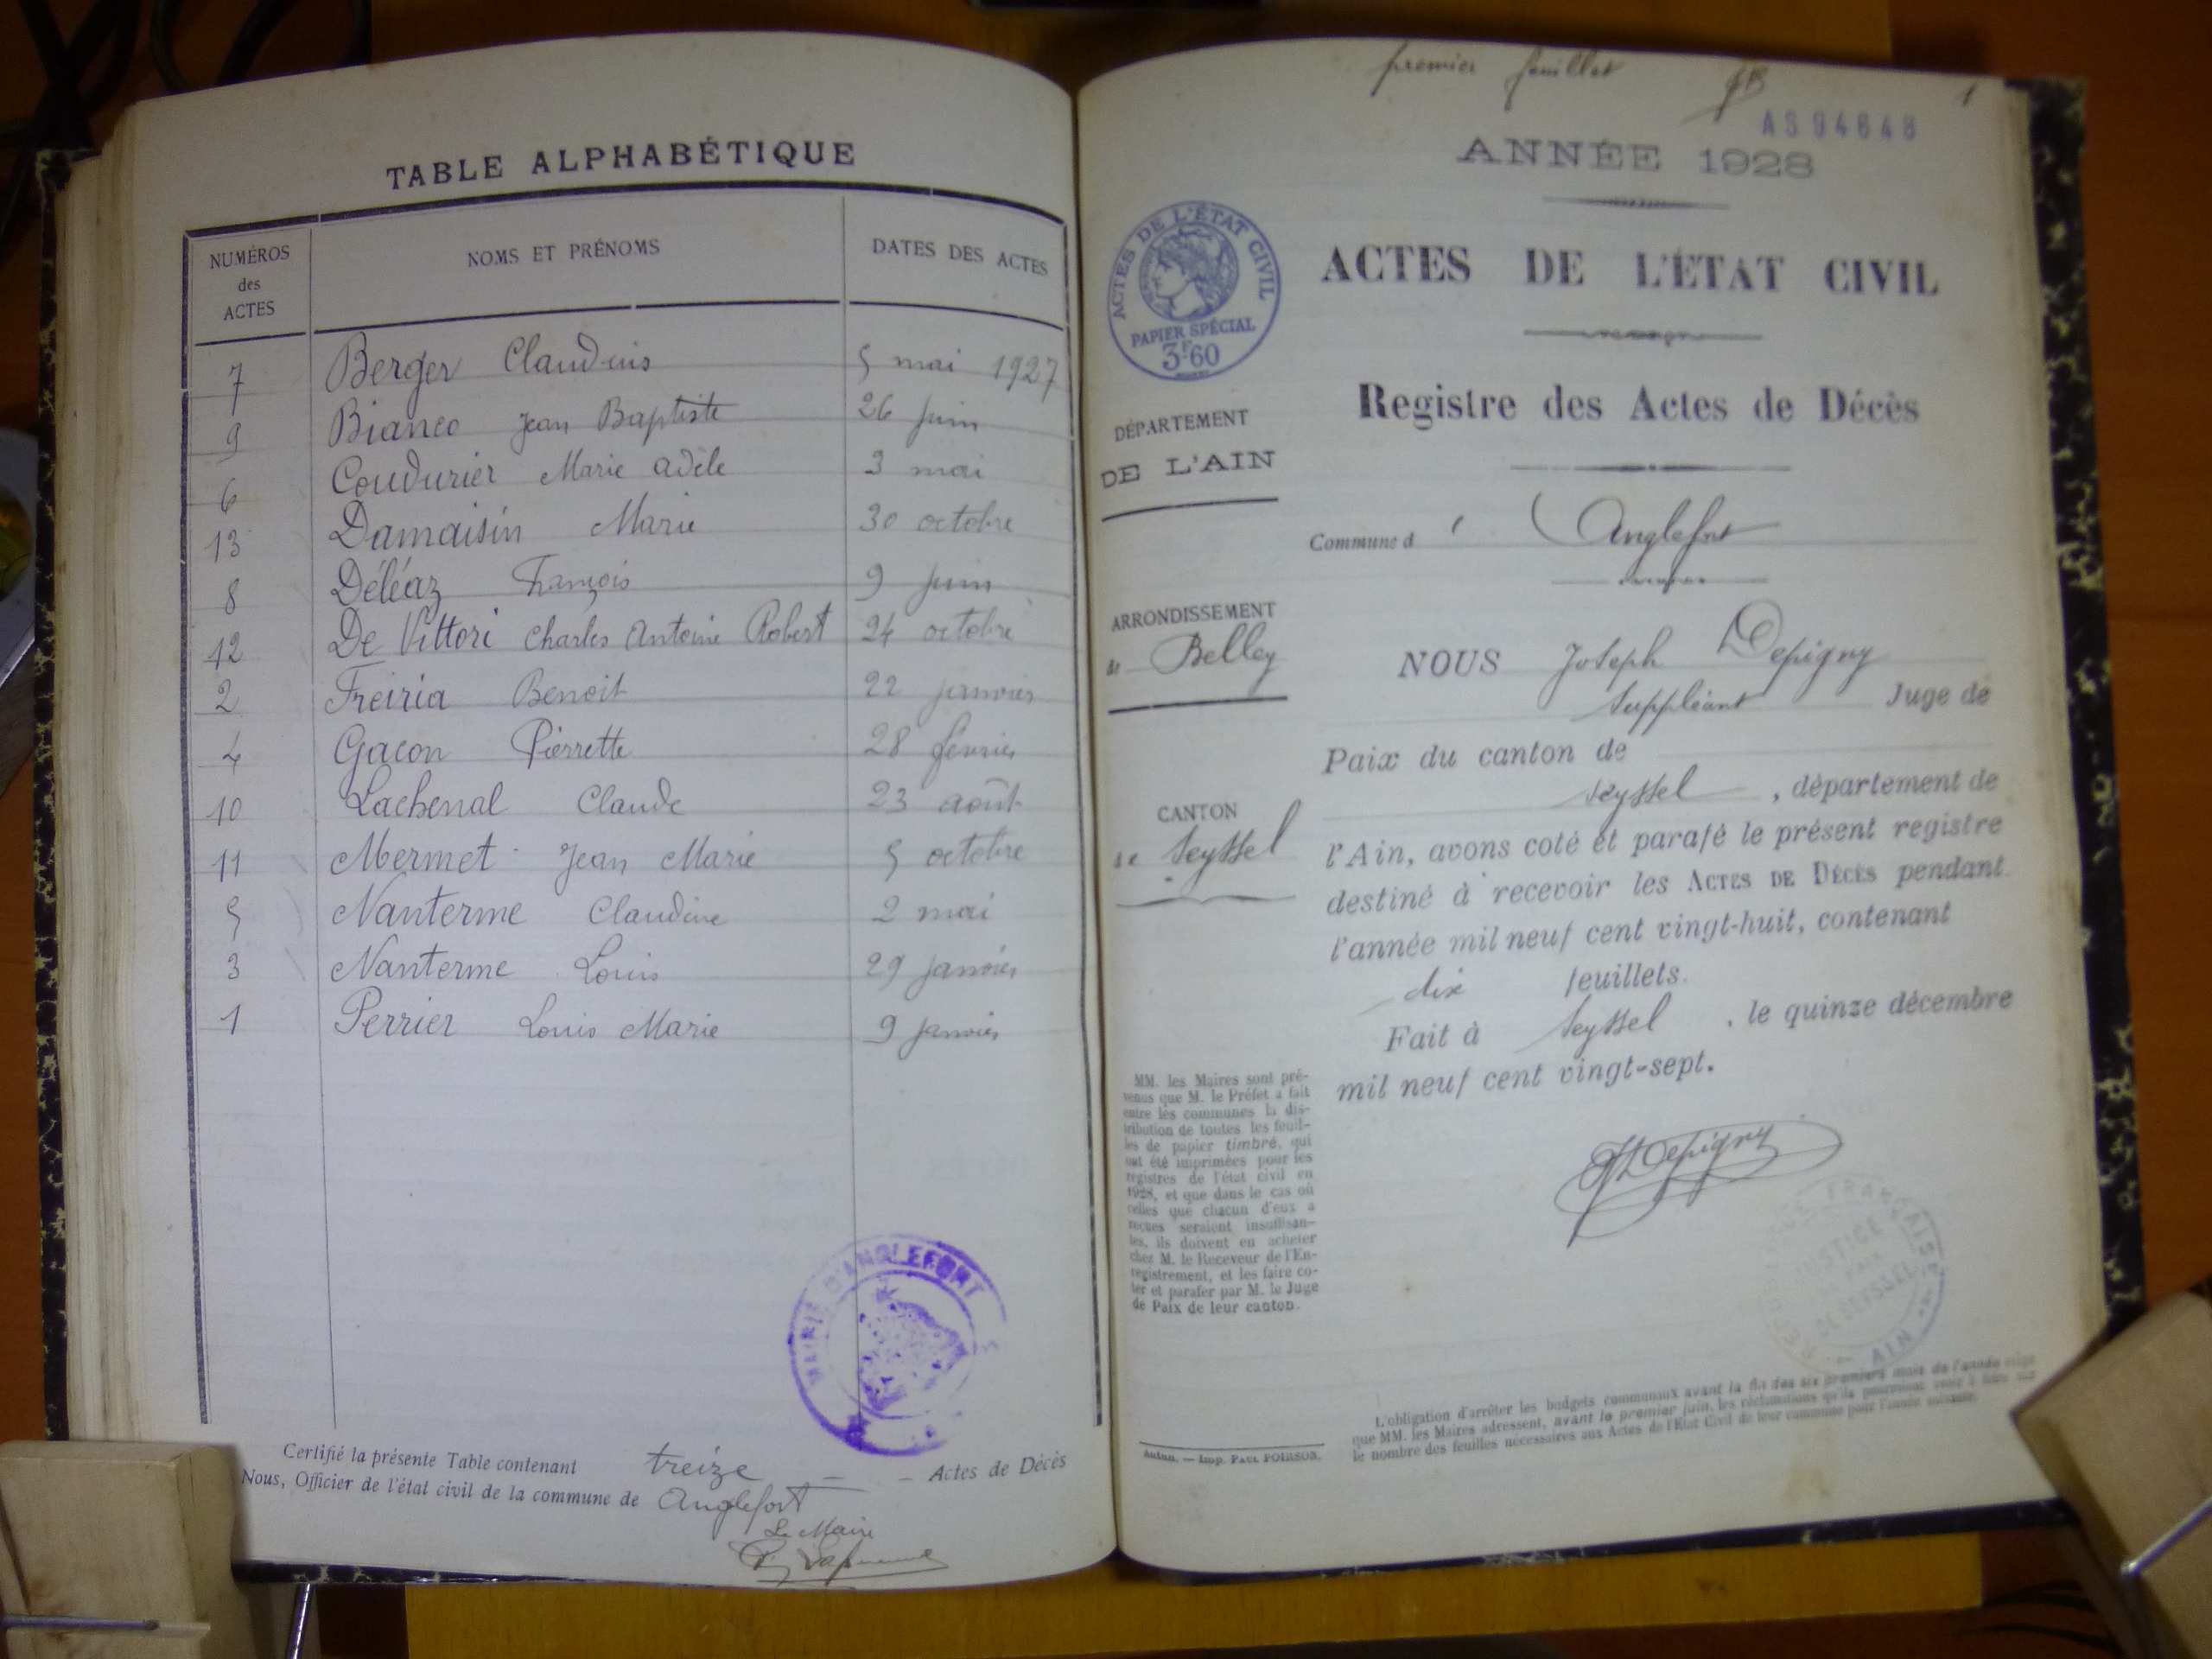 TABLE ALPHABÉTIQUE
NUMÉROS des ACTES NOMS ET PRÉNOMS DATES DES ACTES
7 Berger Claudius 5 mai 1927
9 Bianco Jean Baptiste 26 juin
6 Coudurier Marie Adèle 3 mai
13 Damaisin Marie 30 octobre
8 Déléaz François 9 juin
12 De Vittori Charles Antoine Robert 24 octobre
2 Freiria Benoit 22 janvier
4 Gacon Pierrette 28 février
10 Lachenal Claude 23 août
11 Mermet Jean Marie 5 octobre
5 Nanterme Claudine 2 mai
3 Nanterme Louis 29 janvier
1 Perrier Louis Marie 9 janvier
MAIRIE D'ANGLEFORT
Certifié la présente Table contenant treize Actes de Décès
Nous, Officier de l'état civil de la commune de Anglefort
Le Maire
premier feuillet 1
AS 94648
ANNÉE 1928
ACTES DE L'ÉTAT CIVIL
PAPIER SPÉCIAL
3F60
ACTES DE L'ÉTAT CIVIL
Registre des Actes de Décès
DÉPARTEMENT
DE L'AIN
Commune d' Anglefort
ARRONDISSEMENT
de Belley
NOUS Joseph Depigny
suppléant Juge de
Paix du canton de
Seyssel, département de
CANTON
de Seyssel
l'Ain, avons coté et parafé le présent registre
destiné à recevoir les ACTES DE DÉCÈS pendant
l'année mil neuf cent vingt-huit, contenant
dix feuillets.
Fait à Seyssel, le quinze décembre
mil neuf cent vingt-sept.
MM. les Maires sont pré-
venus que M. le Préfet a fait
entre les communes la dis-
tribution de toutes les feuil-
les de papier timbré, qui
ont été imprimées pour les
registres de l'état civil en
1928, et que dans le cas où
celles que chacun d'eux a
reçues seraient insuffisan-
tes, ils doivent en acheter
chez M. le Receveur de l'En-
registrement, et les faire co-
ter et parafer par M. le Juge
de Paix de leur canton.
Depigny
DE SEYSSEL
AIN
L'obligation d'arrêter les budgets communaux avant la fin des six premiers mois de l'année exige
que MM. les Maires adressent, avant le premier juin, les réclamations qu'ils pourraient avoir à faire sur
le nombre des feuilles nécessaires aux Actes de l'État Civil de leur commune pour l'année suivante.
Autun. — Imp. PAUL POIRSON.